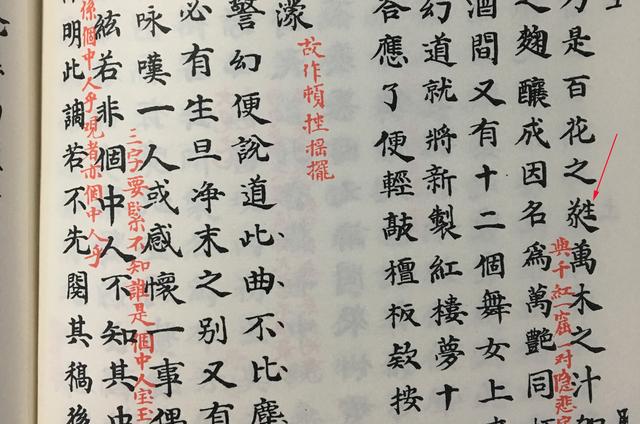 是百花之萬木之汁加
與千紅一窟一对隐悲字
之麯釀成因名爲萬艷同
酒間又有十二個舞女上
幻道就將新製紅樓夢十
答應了便輕敲檀板欵按
濛
故作頓挫摇擺
警幻便說道此曲不比塵
必有生旦净末之别又有
咏嘆一人或感懷一事偶
三字要緊不知誰是個中人宝玉
絃若非個中人不知其中
係個中人乎觀者亦個中人乎
明此調若不先閱其稿後